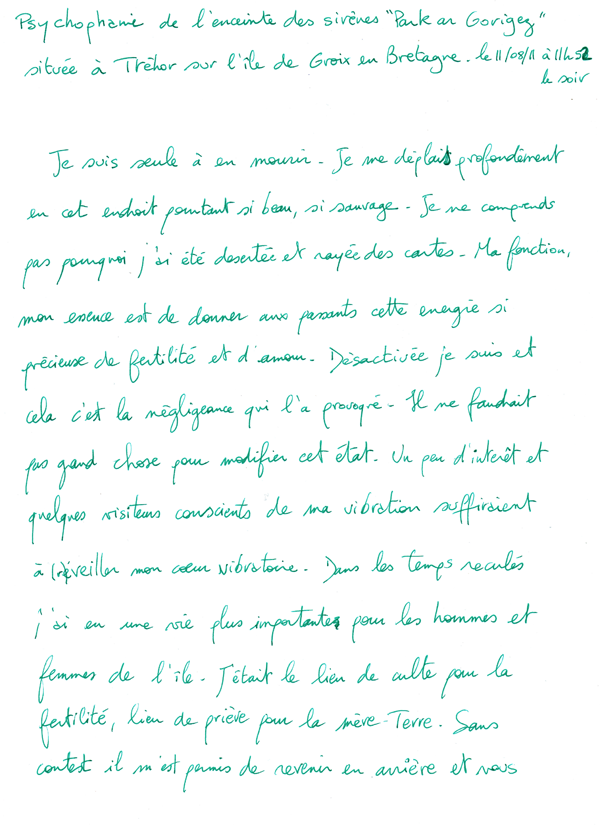 Psychophanie de l'enceinte des sirènes "Park ar Gorigez"
située à Tréhor sur l'île de Groix en Bretagne. le 11/08/11 à 11h52
le soir
Je suis seule à en mourir - Je me déplais profondément
en cet endroit pourtant si beau, si sauvage - Je ne comprends
pas pourquoi j'ai été desertée et rayée des cartes - Ma fonction,
mon essence est de donner aux passants cette energie si
précieuse de fertilité et d'amour - Désactivée je suis et
cela c'est la négligeance qui l'a provoqué - Il ne faudrait
pas grand chose pour modifier cet état - Un peu d'interêt et
quelques visiteurs conscients de ma vibration suffiraient
à (ré)veiller mon cœur vibratoire - Dans les temps reculés
j'ai eu une vie plus importante pour les hommes et
femmes de l'île - J'était le lieu de culte pour la
fertilité, lieu de prière pour la mère-Terre. Sans
contest il m'est permis de revenir en arrière et vous